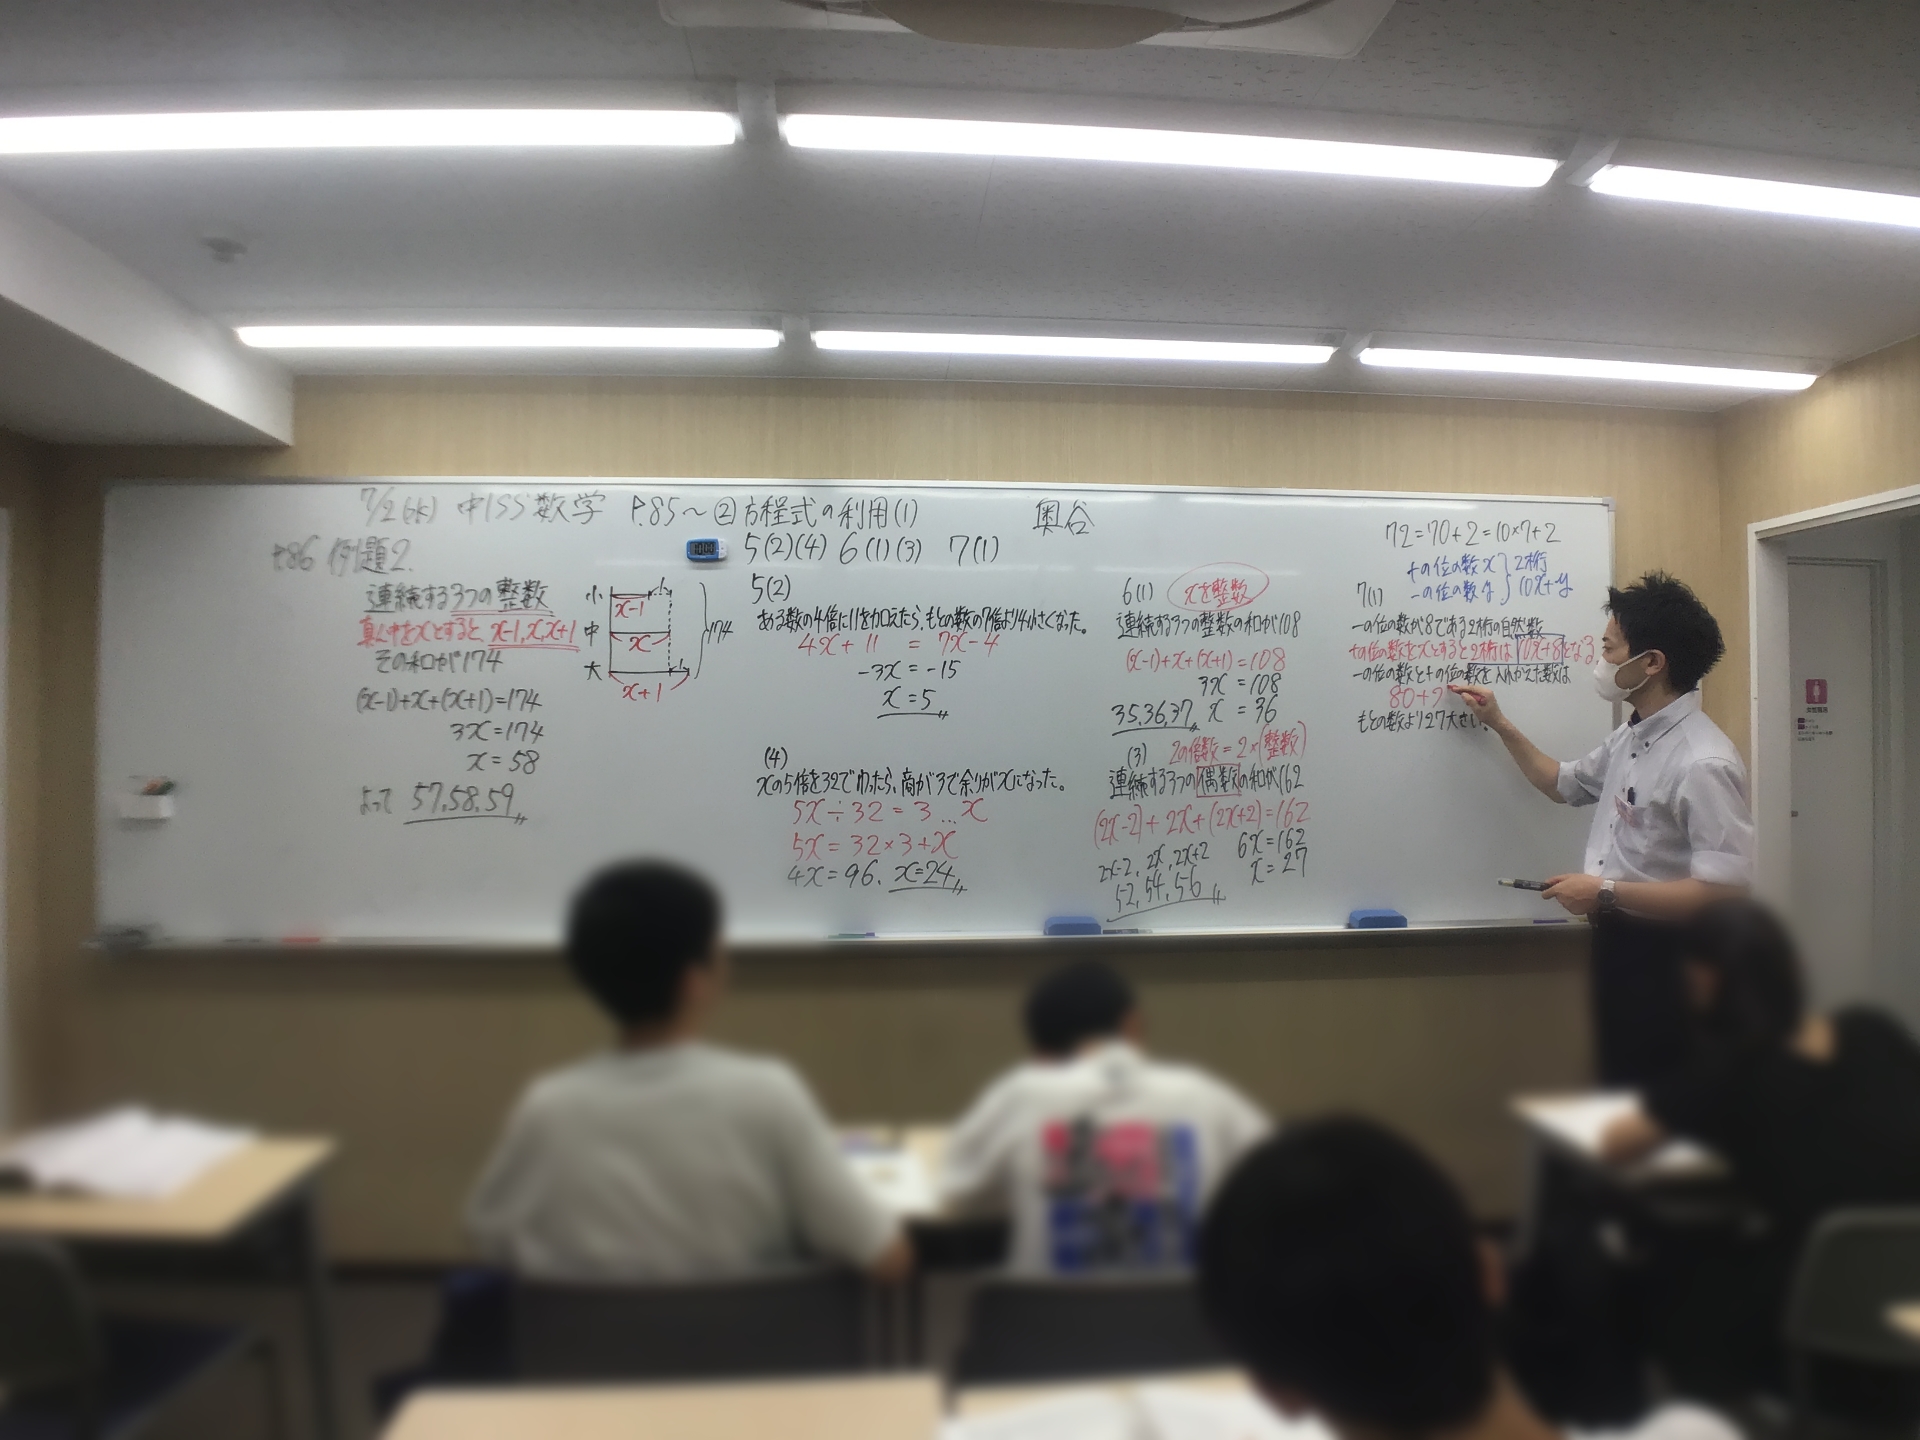 7/2(水) 中1SS数学 P.85～②方程式の利用(1) 奥谷
5(2)(4) 6(1)(3) 7(1)
10:00
P.86 例題2.
連続する3つの整数
真ん中をxとすると、x-1,x,x+1
その和が174
(x-1)+x+(x+1)=174
3x=174
x=58
よって 57,58,59
小 x-1 1
中 x
大 x+1 1
174
5(2)
ある数の4倍に11を加えたら、もとの数の7倍より4小さくなった。
4x+11 = 7x-4
-3x=-15
x=5
(4)
xの5倍を32でわったら、商が3で余りがxになった。
5x÷32=3…x
5x=32×3+x
4x=96. x=24
6(1) xを整数
連続する3つの整数の和が108
(x-1)+x+(x+1)=108
3x=108
35,36,37 x=36
(3) 2の倍数=2×(整数)
連続する3つの偶数の和が162
(2x-2)+2x+(2x+2)=162
6x=162
x=27
2x-2, 2x, 2x+2
52, 54, 56
72=70+2=10×7+2
十の位の数x
一の位の数y
2桁
10x+y
7(1)
一の位の数が8である2桁の自然数
十の位の数をxとすると2桁は10x+8となる
一の位の数と十の位の数を入れかえた数は
80+x
もとの数より27大きい。